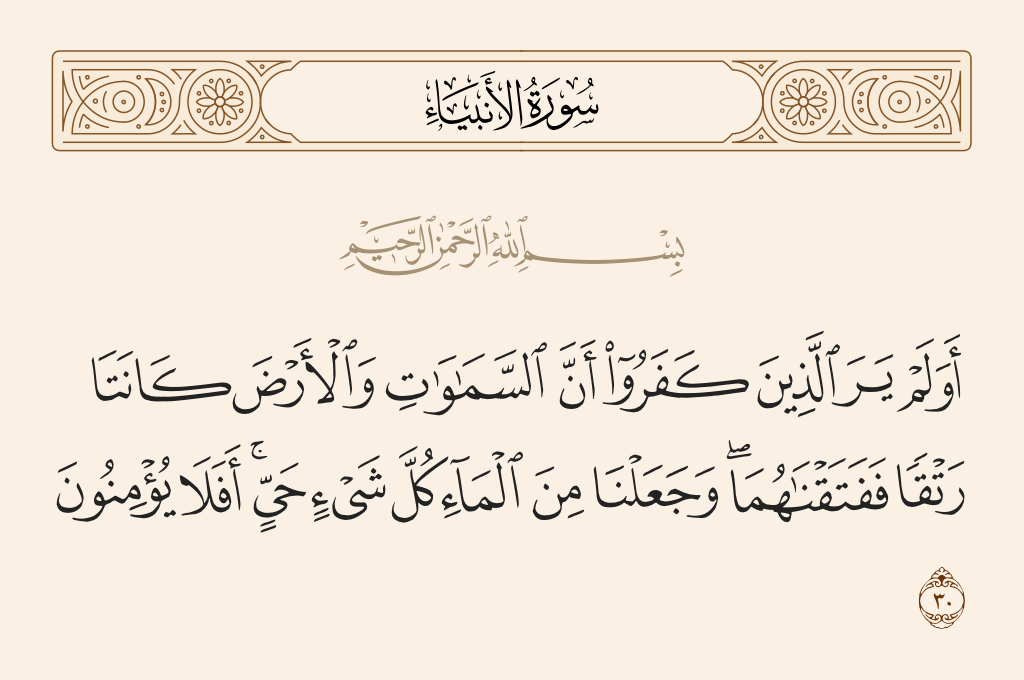 سُورَةُ الأَنبِيَاءِ
بِسْمِ ٱللَّهِ ٱلرَّحْمَٰنِ ٱلرَّحِيمِ
أَوَلَمْ يَرَ ٱلَّذِينَ كَفَرُوٓا۟ أَنَّ ٱلسَّمَٰوَٰتِ وَٱلْأَرْضَ كَانَتَا
رَتْقًا فَفَتَقْنَٰهُمَا ۖ وَجَعَلْنَا مِنَ ٱلْمَآءِ كُلَّ شَىْءٍ حَىٍّ ۚ أَفَلَا يُؤْمِنُونَ
٣٠